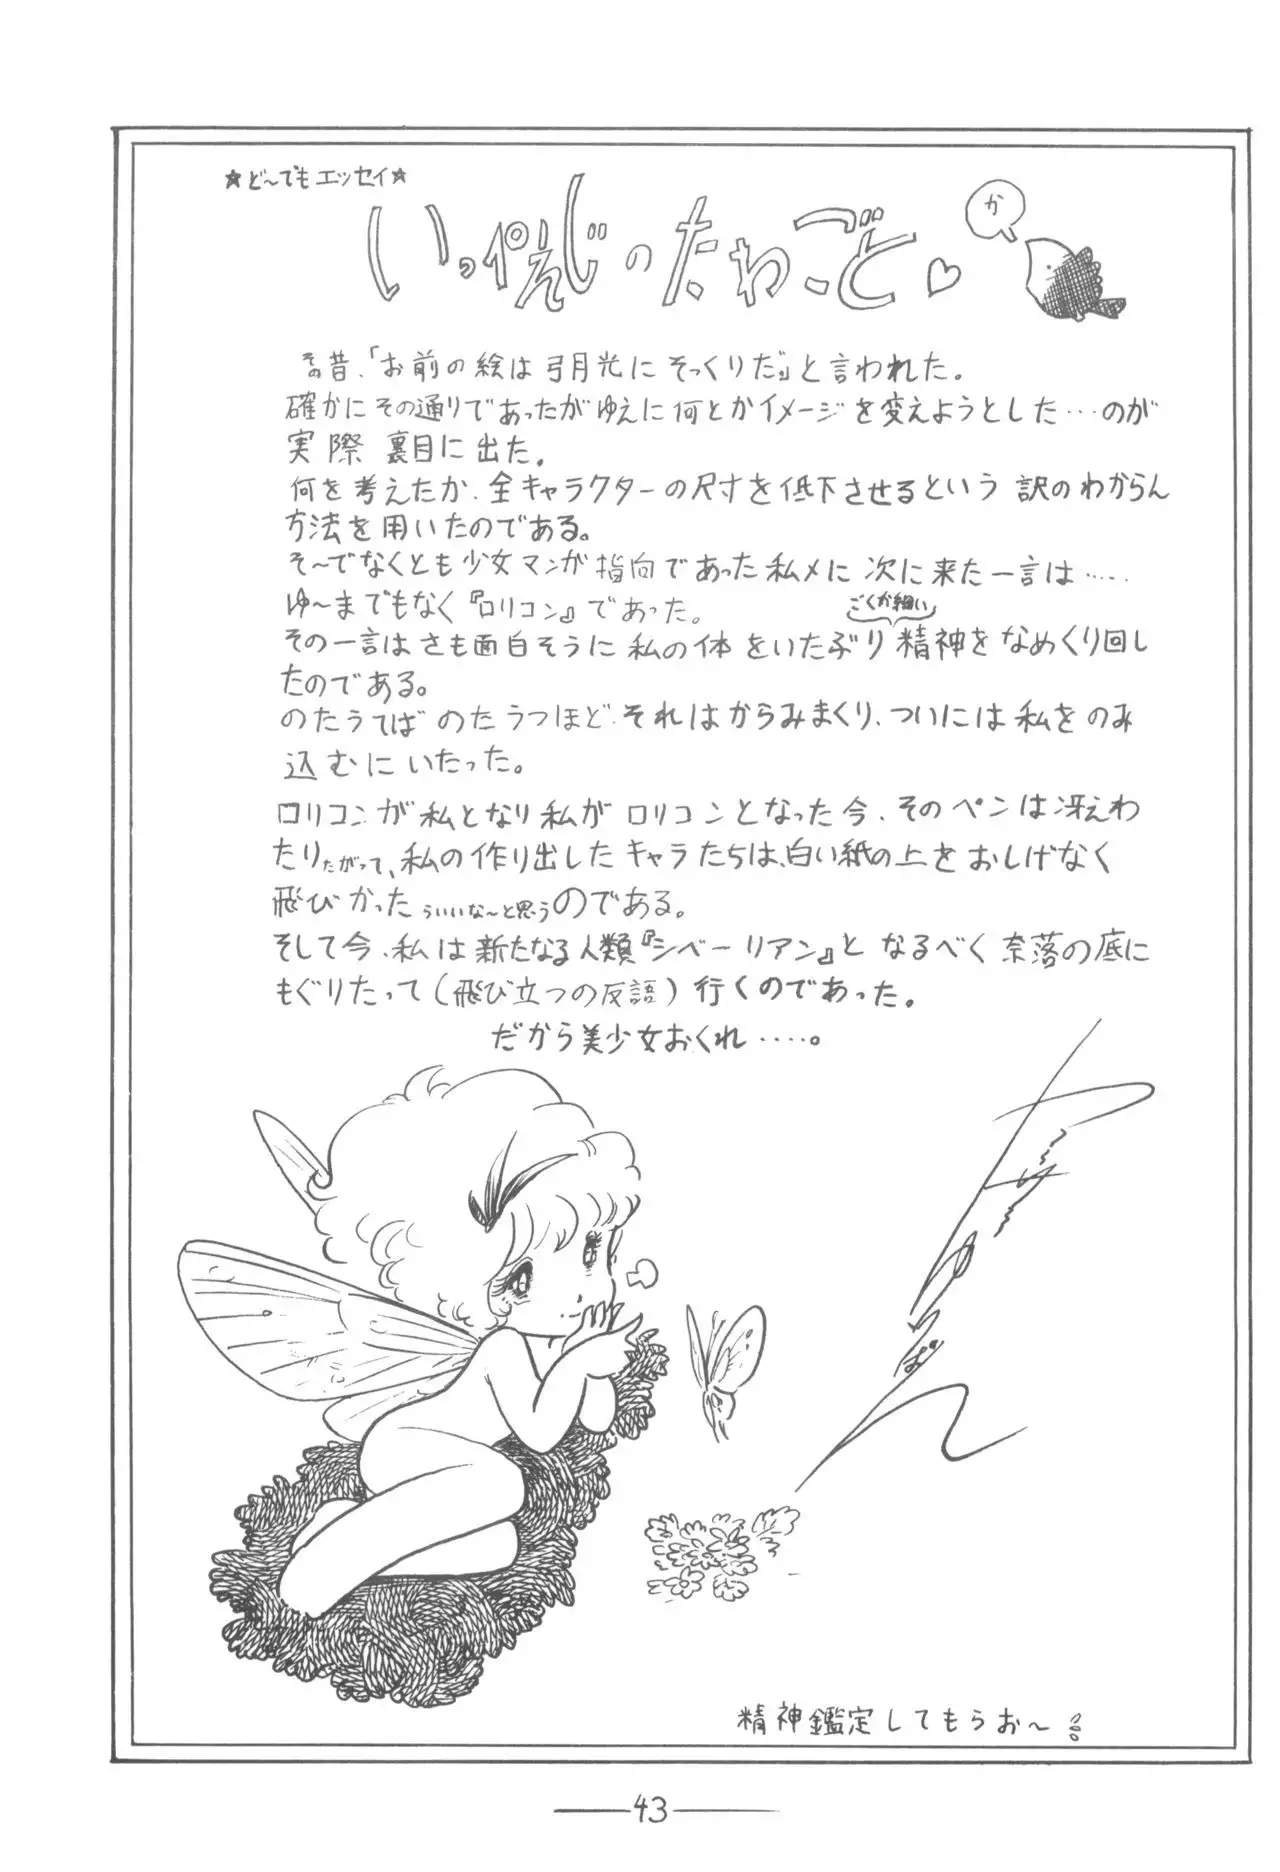 ☆ど〜でもエッセイ☆
いっぺえじのたわごと♡
か
その昔、「お前の絵は弓月光にそっくりだ」と言われた。
確かにその通りであったがゆえに何とかイメージを変えようとした…のが
実際裏目に出た。
何を考えたか、全キャラクターの尺寸を低下させるという訳のわからん
方法を用いたのである。
そ〜でなくとも少女マンガ指向であった私メに次に来た一言は……
ゆ〜までもなく『ロリコン』であった。
ごくか細い
その一言はさも面白そうに私の体をいたぶり精神をなめくり回し
たのである。
のたうてばのたうつほど、それはからみまくり、ついには私をのみ
込むにいたった。
ロリコンが私となり私がロリコンとなった今、そのペンは冴えわ
たりたがって、私の作り出したキャラたちは、白い紙の上をおしげなく
飛びかったらいいな〜と思うのである。
そして今、私は新たなる人類『シベーリアン』となるべく奈落の底に
もぐりたって(飛び立つの反語)行くのであった。
だから美少女おくれ……。
精神鑑定してもらお〜
43